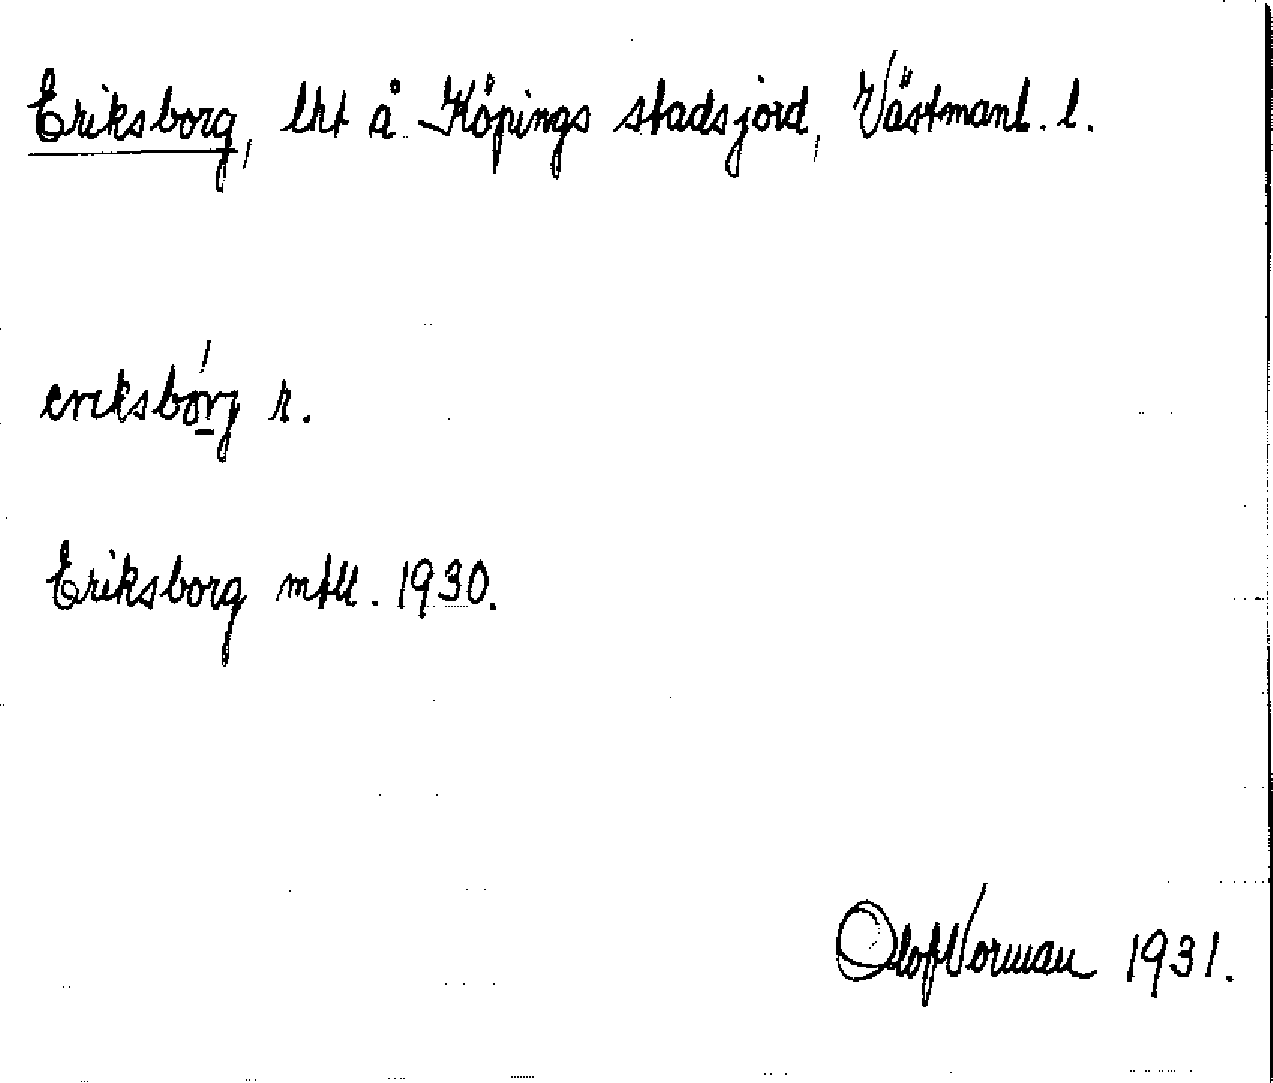 Eriksborg, lht å Köpings stadsjord, Västmanl. l.
eriksbórg r.
Eriksborg mtll. 1930.
Olof Norman 1931.